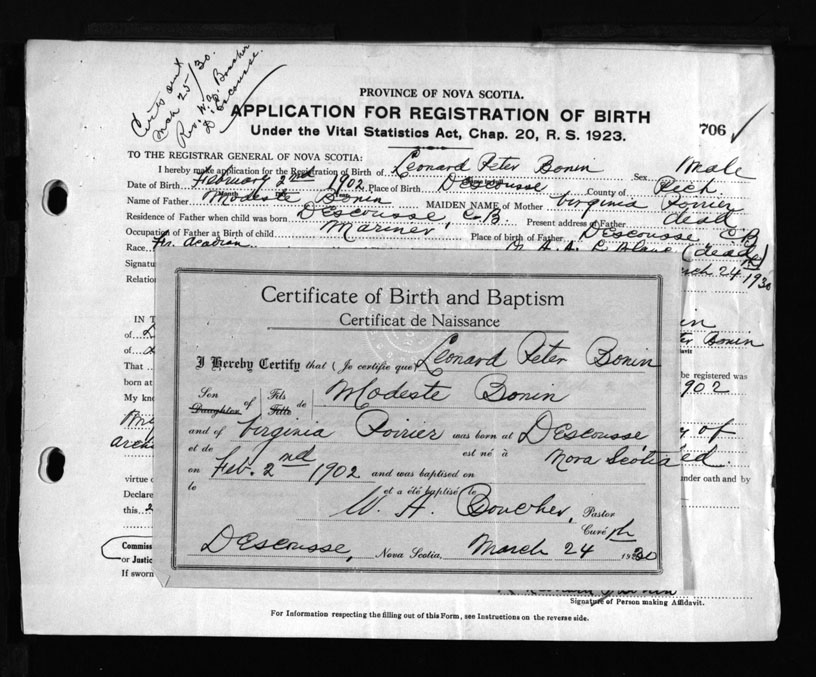 Certs out
Mch 25/30.
Rev. W. A. Boucher
D'Escousse.
PROVINCE OF NOVA SCOTIA.
APPLICATION FOR REGISTRATION OF BIRTH
Under the Vital Statistics Act, Chap. 20, R. S. 1923.
706 ✓
TO THE REGISTRAR GENERAL OF NOVA SCOTIA:
I hereby make application for the Registration of Birth of Leonard Peter Bonin Sex Male
Date of Birth February 2nd 1902 Place of Birth D'Escousse County of Rich
Name of Father Modeste Bonin MAIDEN NAME of Mother Virginia Poirier
Residence of Father when child was born D'Escousse, C.B. Present address of Father dead
Occupation of Father at Birth of child Mariner Place of birth of Father D'Escousse C B
Race Fr. Acadian (dead)
Signatu March 24th 1930
Relation
IN T
of
of Bonin
That be registered was
born at 1902
My kno
virtue o under oath and by
Declare
this 2
Commiss
or Justic
If sworn
Certificate of Birth and Baptism
Certificat de Naissance
I Hereby Certify that (Je certifie que) Leonard Peter Bonin
Son Fils
Daughter of Fille de Modeste Bonin
and of Virginia Poirier was born at D'Escousse,
et de est né à Nova Scotia
on Feb. 2nd 1902 and was baptised on
le et a été baptisé le
W. A. Boucher, Pastor
Curé
D'Escousse, Nova Scotia, March 24th 1930
Signature of Person making Affidavit.
For Information respecting the filling out of this Form, see Instructions on the reverse side.